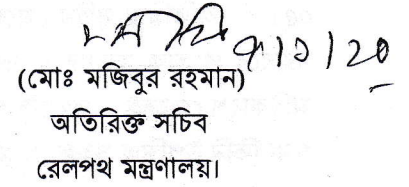 (মোঃ মজিবুর রহমান)
অতিরিক্ত সচিব
রেলপথ মন্ত্রণালয়।